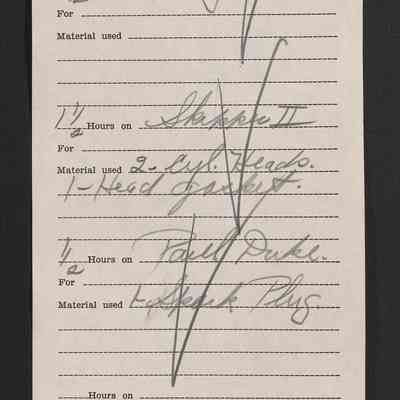 For
Material used
1 1/2 Hours on Skipper II
For
Material used 2 - Cyl. Heads.
1 - Head gasket.
1/2 Hours on Paul Duke.
For
Material used 1 - Spark Plug
Hours on